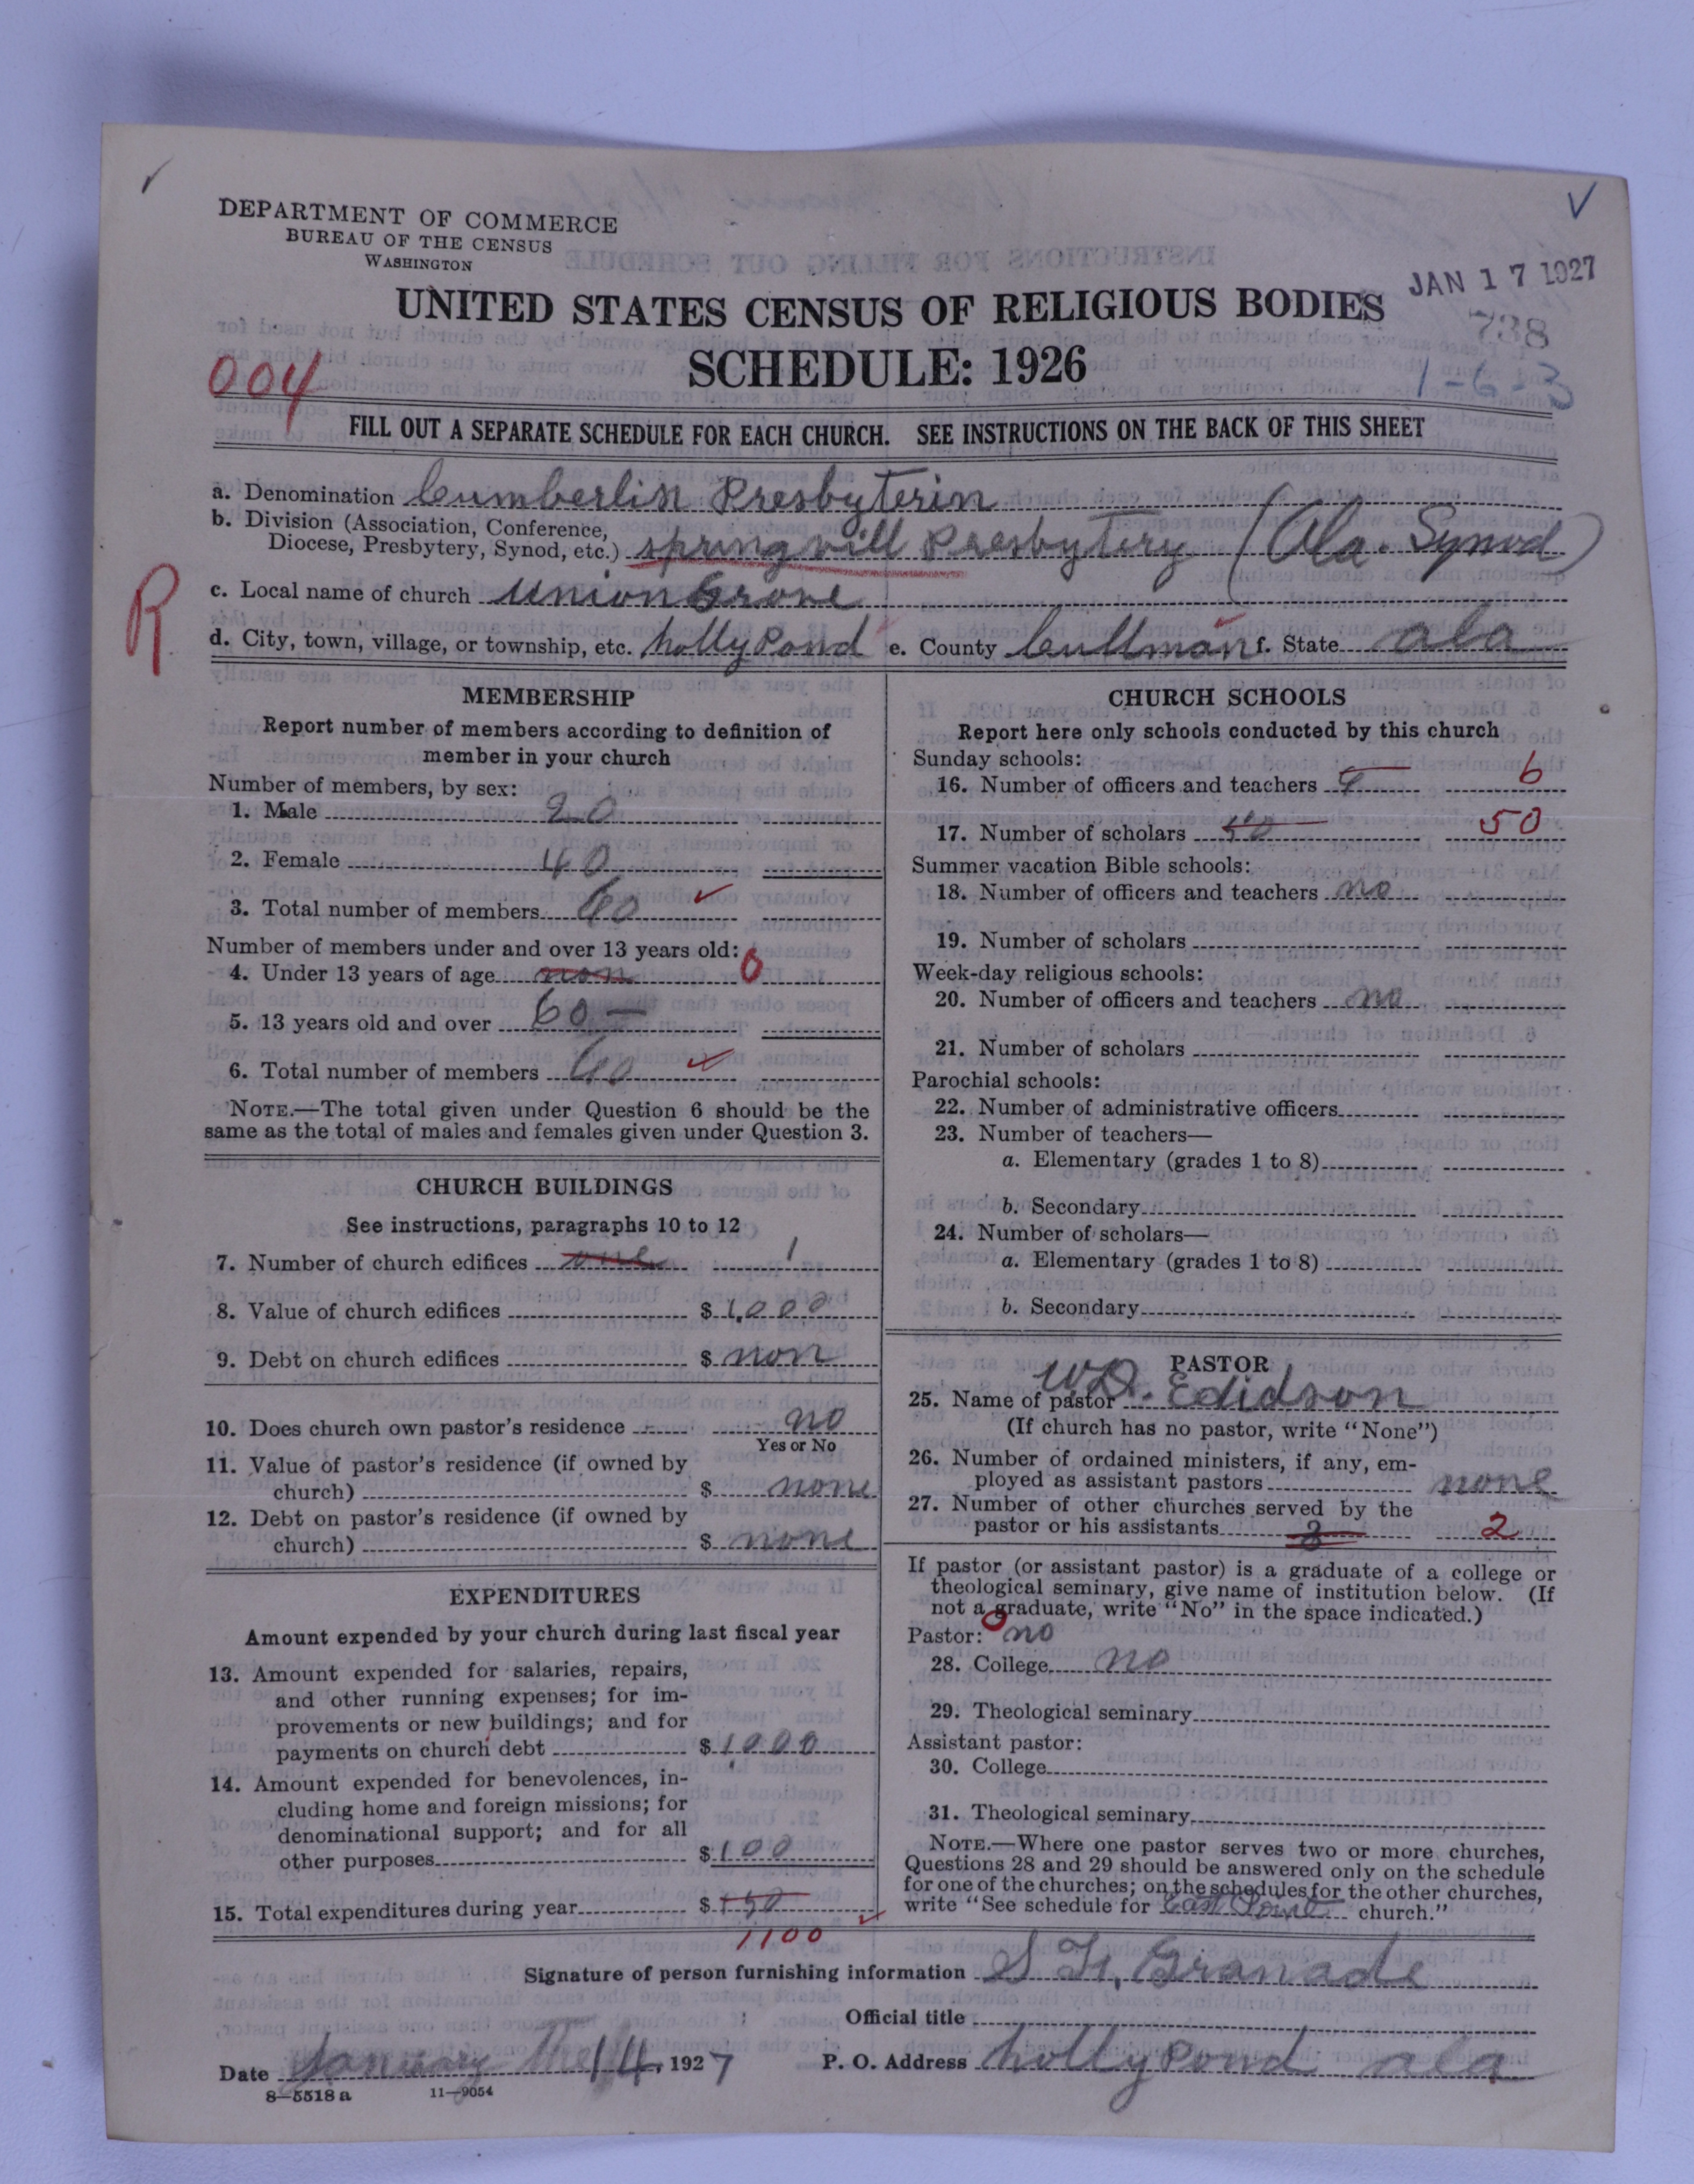 DEPARTMENT OF COMMERCE
BUREAU OF THE CENSUS
WASHINGTON
JAN 17 1927
UNITED STATES CENSUS OF RELIGIOUS BODIES
738
SCHEDULE: 1926
1-6-3
004
FILL OUT A SEPARATE SCHEDULE FOR EACH CHURCH. SEE INSTRUCTIONS ON THE BACK OF THIS SHEET
a. Denomination Cumberlin Presbyterin
b. Division (Association, Conference,
Diocese, Presbytery, Synod, etc.) springvill Presbytery (Ala. Synod)
R
c. Local name of church Union Grove
d. City, town, village, or township, etc. holly Pond e. County Cullman f. State ala
MEMBERSHIP
Report number of members according to definition of
member in your church
Number of members, by sex:
1. Male 20
2. Female 40
3. Total number of members 60
Number of members under and over 13 years old:
4. Under 13 years of age non 0
5. 13 years old and over 60 —
6. Total number of members 60
NOTE.—The total given under Question 6 should be the
same as the total of males and females given under Question 3.
CHURCH BUILDINGS
See instructions, paragraphs 10 to 12
7. Number of church edifices one 1
8. Value of church edifices $ 1,000
9. Debt on church edifices $ non
10. Does church own pastor's residence no
Yes or No
11. Value of pastor's residence (if owned by
church) $ none
12. Debt on pastor's residence (if owned by
church) $ none
EXPENDITURES
Amount expended by your church during last fiscal year
13. Amount expended for salaries, repairs,
and other running expenses; for im-
provements or new buildings; and for
payments on church debt $ 1,000
14. Amount expended for benevolences, in-
cluding home and foreign missions; for
denominational support; and for all
other purposes $ 100
15. Total expenditures during year $
1100
CHURCH SCHOOLS
Report here only schools conducted by this church
Sunday schools:
16. Number of officers and teachers 6
17. Number of scholars 50 50
Summer vacation Bible schools:
18. Number of officers and teachers no
19. Number of scholars
Week-day religious schools:
20. Number of officers and teachers no
21. Number of scholars
Parochial schools:
22. Number of administrative officers
23. Number of teachers—
a. Elementary (grades 1 to 8)
b. Secondary
24. Number of scholars—
a. Elementary (grades 1 to 8)
b. Secondary
PASTOR
25. Name of pastor W.D. Edidson
(If church has no pastor, write "None")
26. Number of ordained ministers, if any, em-
ployed as assistant pastors none
27. Number of other churches served by the
pastor or his assistants 3 2
If pastor (or assistant pastor) is a graduate of a college or
theological seminary, give name of institution below. (If
not a graduate, write "No" in the space indicated.)
Pastor: 0 no
28. College no
29. Theological seminary
Assistant pastor:
30. College
31. Theological seminary
NOTE.—Where one pastor serves two or more churches,
Questions 28 and 29 should be answered only on the schedule
for one of the churches; on the schedules for the other churches,
write "See schedule for East Point church."
Signature of person furnishing information S F. Granade
Official title
Date January the 14, 1927 P. O. Address holly Pond ala
8—5518 a 11—9054